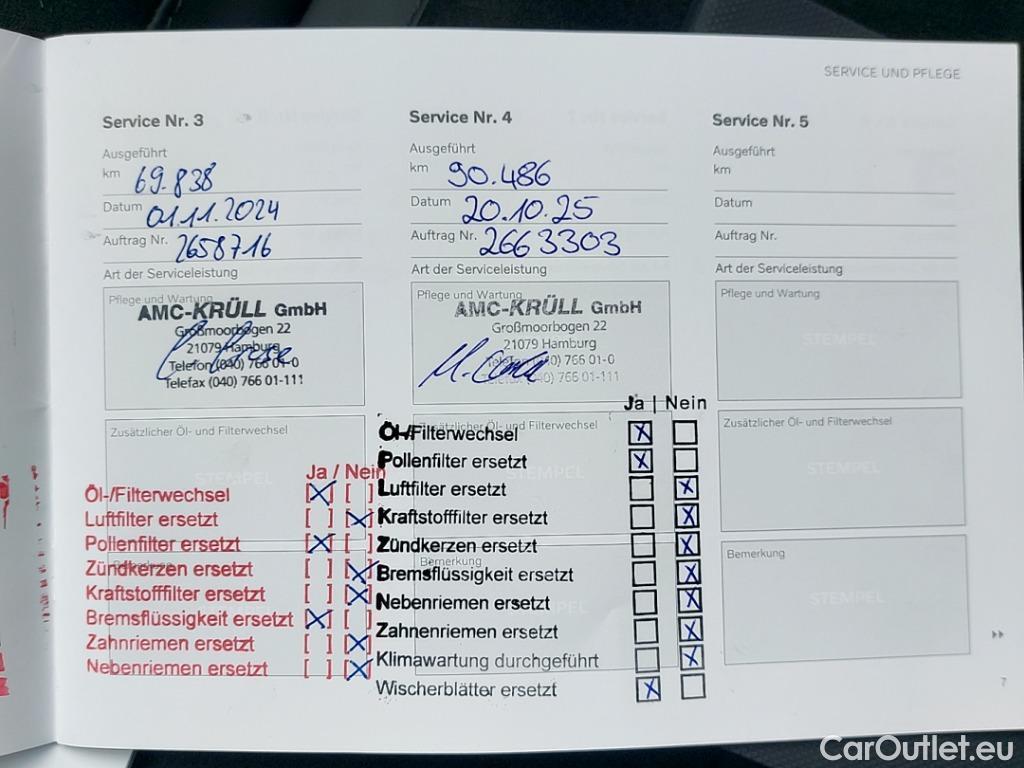 SERVICE UND PFLEGE
Service Nr. 3
Ausgeführt
km 69.838
Datum 01.11.2024
Auftrag Nr. 2658716
Art der Serviceleistung
Pflege und Wartung
AMC-KRÜLL GmbH
Großmoorbogen 22
21079 Hamburg
Telefon (040) 766 01-0
Telefax (040) 766 01-111
Zusätzlicher Öl- und Filterwechsel
STEMPEL
Ja / Nein
Öl-/Filterwechsel [X] [ ]
Luftfilter ersetzt [ ] [X]
Pollenfilter ersetzt [X] [ ]
Zündkerzen ersetzt [ ] [X]
Kraftstofffilter ersetzt [ ] [X]
Bremsflüssigkeit ersetzt [X] [ ]
Zahnriemen ersetzt [ ] [X]
Nebenriemen ersetzt [ ] [X]
Service Nr. 4
Ausgeführt
km 90.486
Datum 20.10.25
Auftrag Nr. 2663303
Art der Serviceleistung
Pflege und Wartung
AMC-KRÜLL GmbH
Großmoorbogen 22
21079 Hamburg
Telefon (040) 766 01-0
(040) 766 01-111
Zusätzlicher Öl- und Filterwechsel
STEMPEL
Bemerkung
Ja | Nein
Öl-/Filterwechsel X
Pollenfilter ersetzt X
Luftfilter ersetzt X
Kraftstofffilter ersetzt X
Zündkerzen ersetzt X
Bremsflüssigkeit ersetzt X
Nebenriemen ersetzt X
Zahnenriemen ersetzt X
Klimawartung durchgeführt X
Wischerblätter ersetzt X
Service Nr. 5
Ausgeführt
km
Datum
Auftrag Nr.
Art der Serviceleistung
Pflege und Wartung
STEMPEL
Zusätzlicher Öl- und Filterwechsel
STEMPEL
Bemerkung
STEMPEL
7
CarOutlet.eu